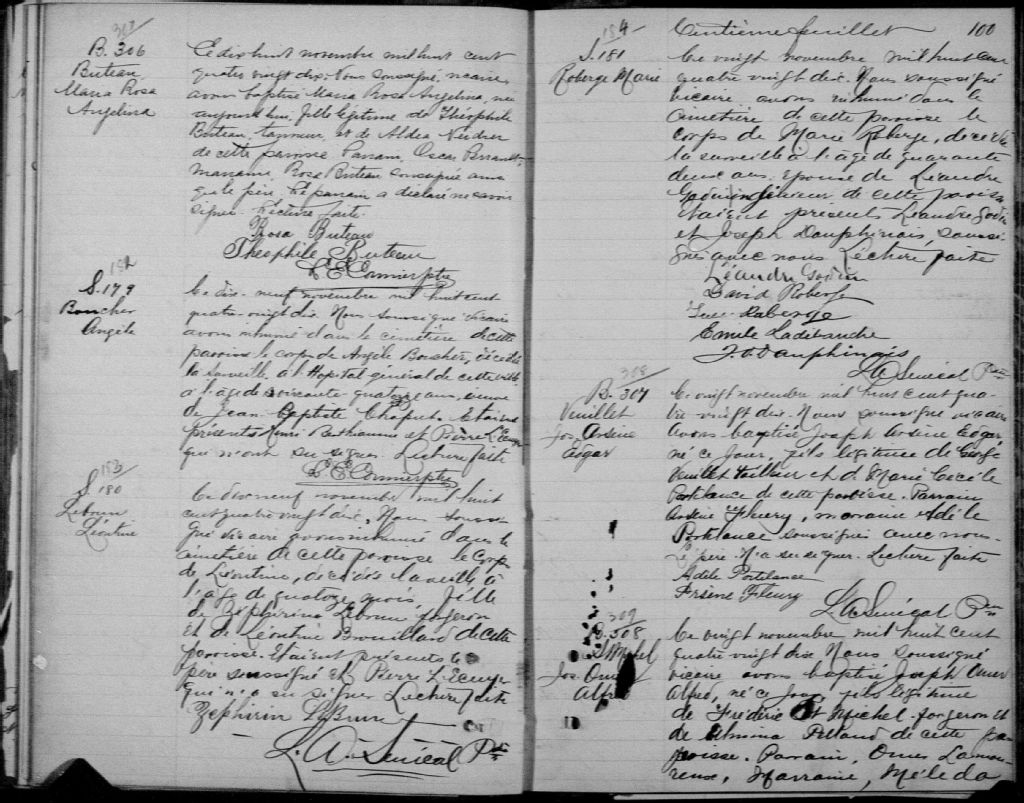 307
B. 306
Buteau
Maria Rosa
Angelina
Ce dix huit novembre mil huit cent
quatre vingt dix. Nous soussigné, vicaire
avons baptisé Maria Rosa Angelina, née
aujourd'hui, fille légitime de Théophile
Buteau, tanneur, et de Aldea
de cette paroisse Parrain, Oscar Perrault
marraine, Rosa Buteau soussignée ainsi
que le père. Le parrain a déclaré ne savoir
signer. Lecture faite.
Rosa Buteau
Theophile Buteau
152
S. 179
Boucher
Angèle
Ce dix-neuf novembre mil huit cent
quatre-vingt dix. Nous soussigné vicaire
avons inhumé dans le cimetière de cette
paroisse le corps de Angèle Boucher, décédée
la surveille à l'Hopital général de cette ville
à l'age de soixante quatorze ans, veuve
de Jean-Baptiste Chaput. Etaient
présents Henri Berthiaume et Pierre L'Ecuyer
qui n'ont su signer. Lecture faite
153
S. 180
Lebrun
Léontine
Ce dix neuf novembre mil huit
cent quatre vingt dix, Nous soussi-
gné vicaire avons inhumé dans le
cimetière de cette paroisse le corps
de Léontine, décédée la veille à
l'age de quatorze mois, fille
de Zéphirin Lebrun forgeron
et de Léontine Brouillard de cette
paroisse. Etaient présents le
père soussigné et Pierre L'Ecuyer
qui n'a su signer Lecture faite
Zephirin LeBrun
L. A. Senécal Ptre
Centième feuillet 100
154
S. 181
Roberge Marie
Ce vingt novembre mil huit cent
quatre vingt dix. Nous soussigné
vicaire avons inhumé dans le
cimetière de cette paroisse le
corps de Marie Roberge, décédée
la surveille à l'âge de quarante
deux ans, épouse de Léandre
Godin de cette paroisse
Etaient présents Léandre Godin
et Joseph Dauphinais, soussi-
gnés avec nous Lecture faite
Léandre Godin
David Roberge
Laberge
Emile Ladebauche
J. O. Dauphinais
L. A. Senécal Ptre
308
B. 307
Veuillet
Jos. Arsène
Edgar
Ce vingt novembre mil huit cent qua-
tre vingt dix. Nous soussigné vicaire
avons baptisé Joseph Arsène Edgar,
né ce jour, fils légitime de George
Veuillet tailleur et de Marie Cécile
Portelance de cette paroisse. Parrain
Arsène Fleury, marraine Adèle
Portelance soussignés avec nous.
Le père n'a su signer. Lecture faite
Adele Portelance
Arsene Fleury
L. A. Senécal Ptre
309
B. 308
St Michel
Jos. Omer
Alfred
Ce vingt novembre mil huit cent
quatre vingt dix Nous soussigné
vicaire avons baptisé Joseph Omer
Alfred, né ce jour, fils légitime
de Frédéric St Michel forgeron et
de Pelland de cette pa-
roisse. Parrain, Omer Lamou-
reux, Marraine, Méléda